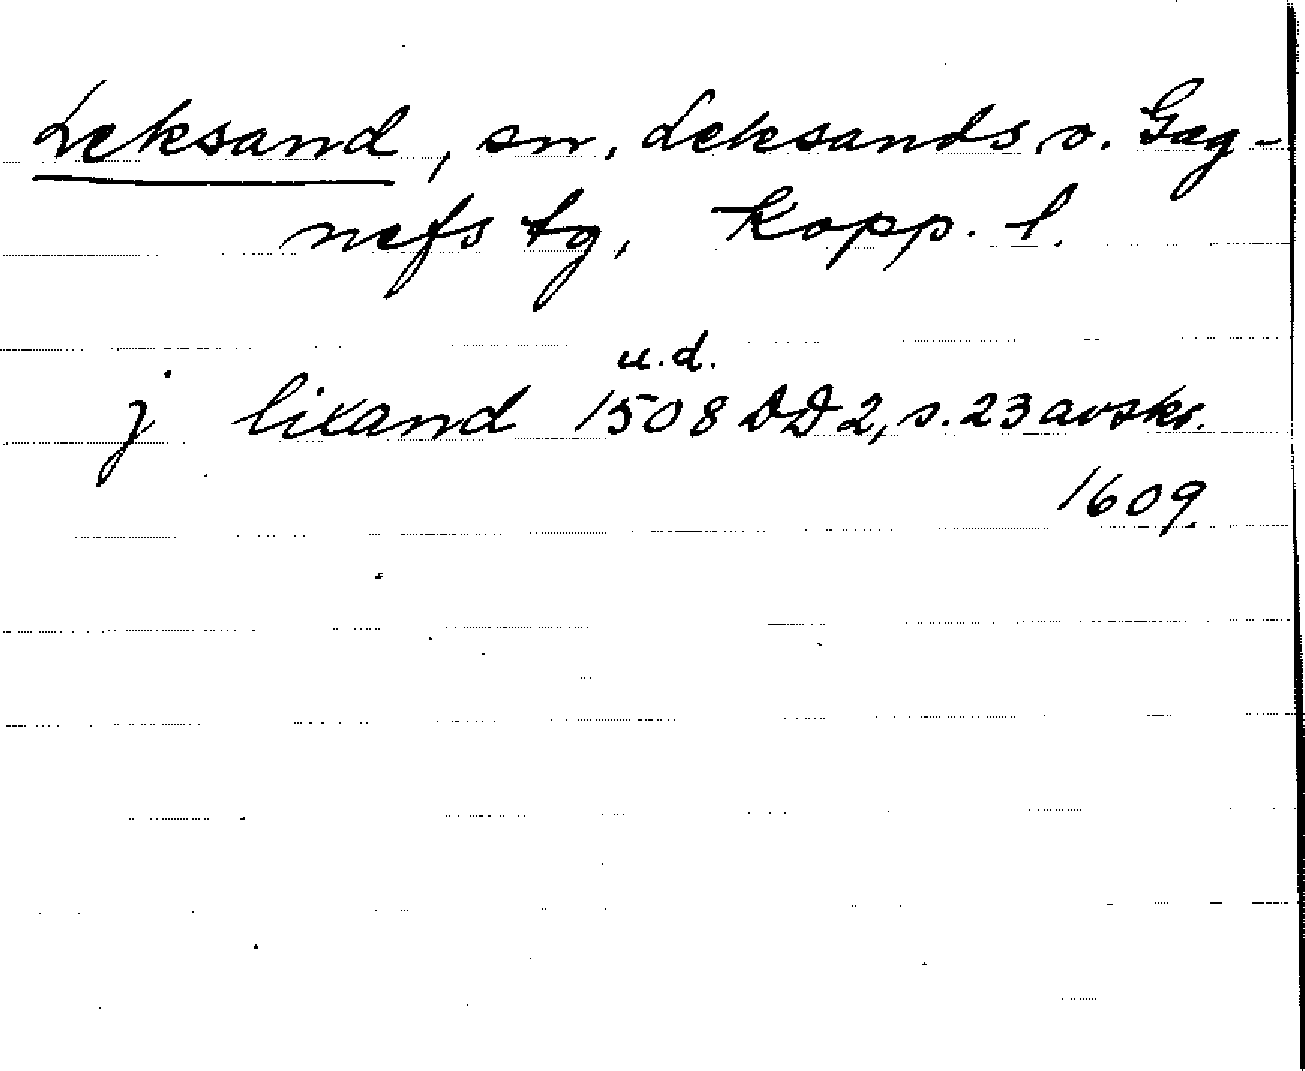 Leksand, sn, Leksands o. Gag-
nefs tg, Kopp. l.
u.d.
j lixand 1508 DD2, s. 23 avskr.
1609.